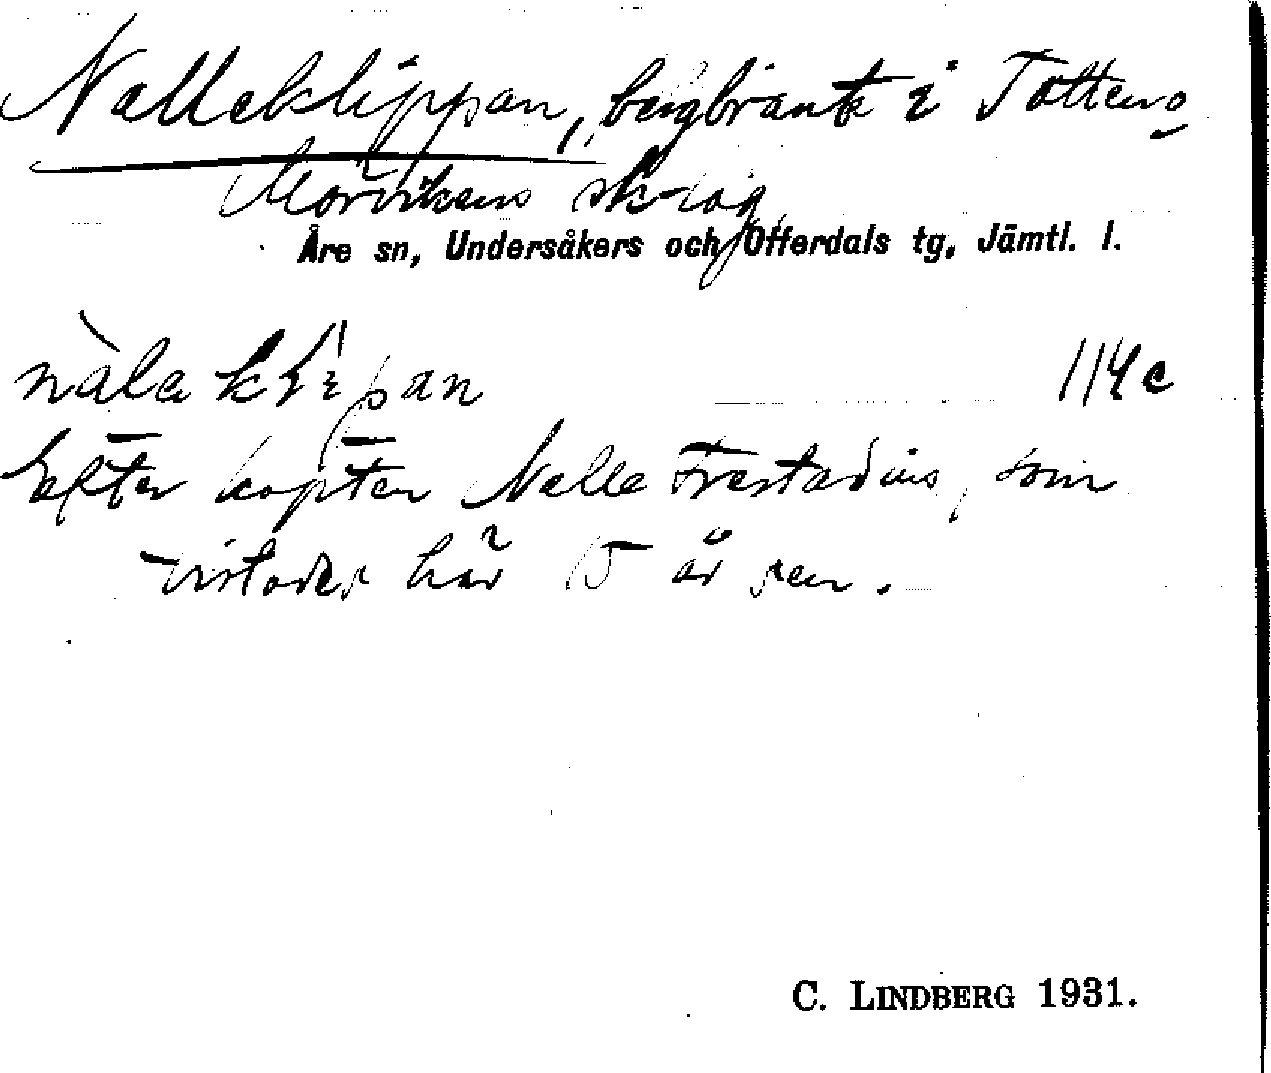 Nalleklippan, bergbrant i Totten o
Mörvikens sk-lag
Åre sn, Undersåkers och Offerdals tg, Jämtl. l.
nàla klı̋pan 114 c
Efter kapten Nalle Frestadius, som
vistades här 15 år sen.
C. LINDBERG 1931.